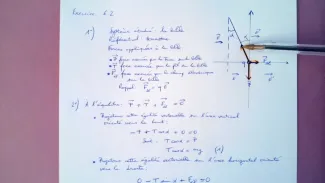 Exercice 62
1) Système étudié : la bille
Référentiel : terrestre
Forces appliquées à la bille
• P force exercée par la Terre sur la bille
• T force exercée par le fil sur la bille
• F force exercée par le champ électrique
sur la bille
Rappel : F = q E
2) A l'équilibre : P + T + F = 0
• Projetons cette égalité vectorielle sur l'axe vertical
orienté vers le haut :
- P + T cos α + 0 = 0
Soit : T cos α = P
T cos α = mg (1)
• Projetons cette égalité vectorielle sur l'axe horizontal orienté
vers la droite :
0 - T sin α + F = 0